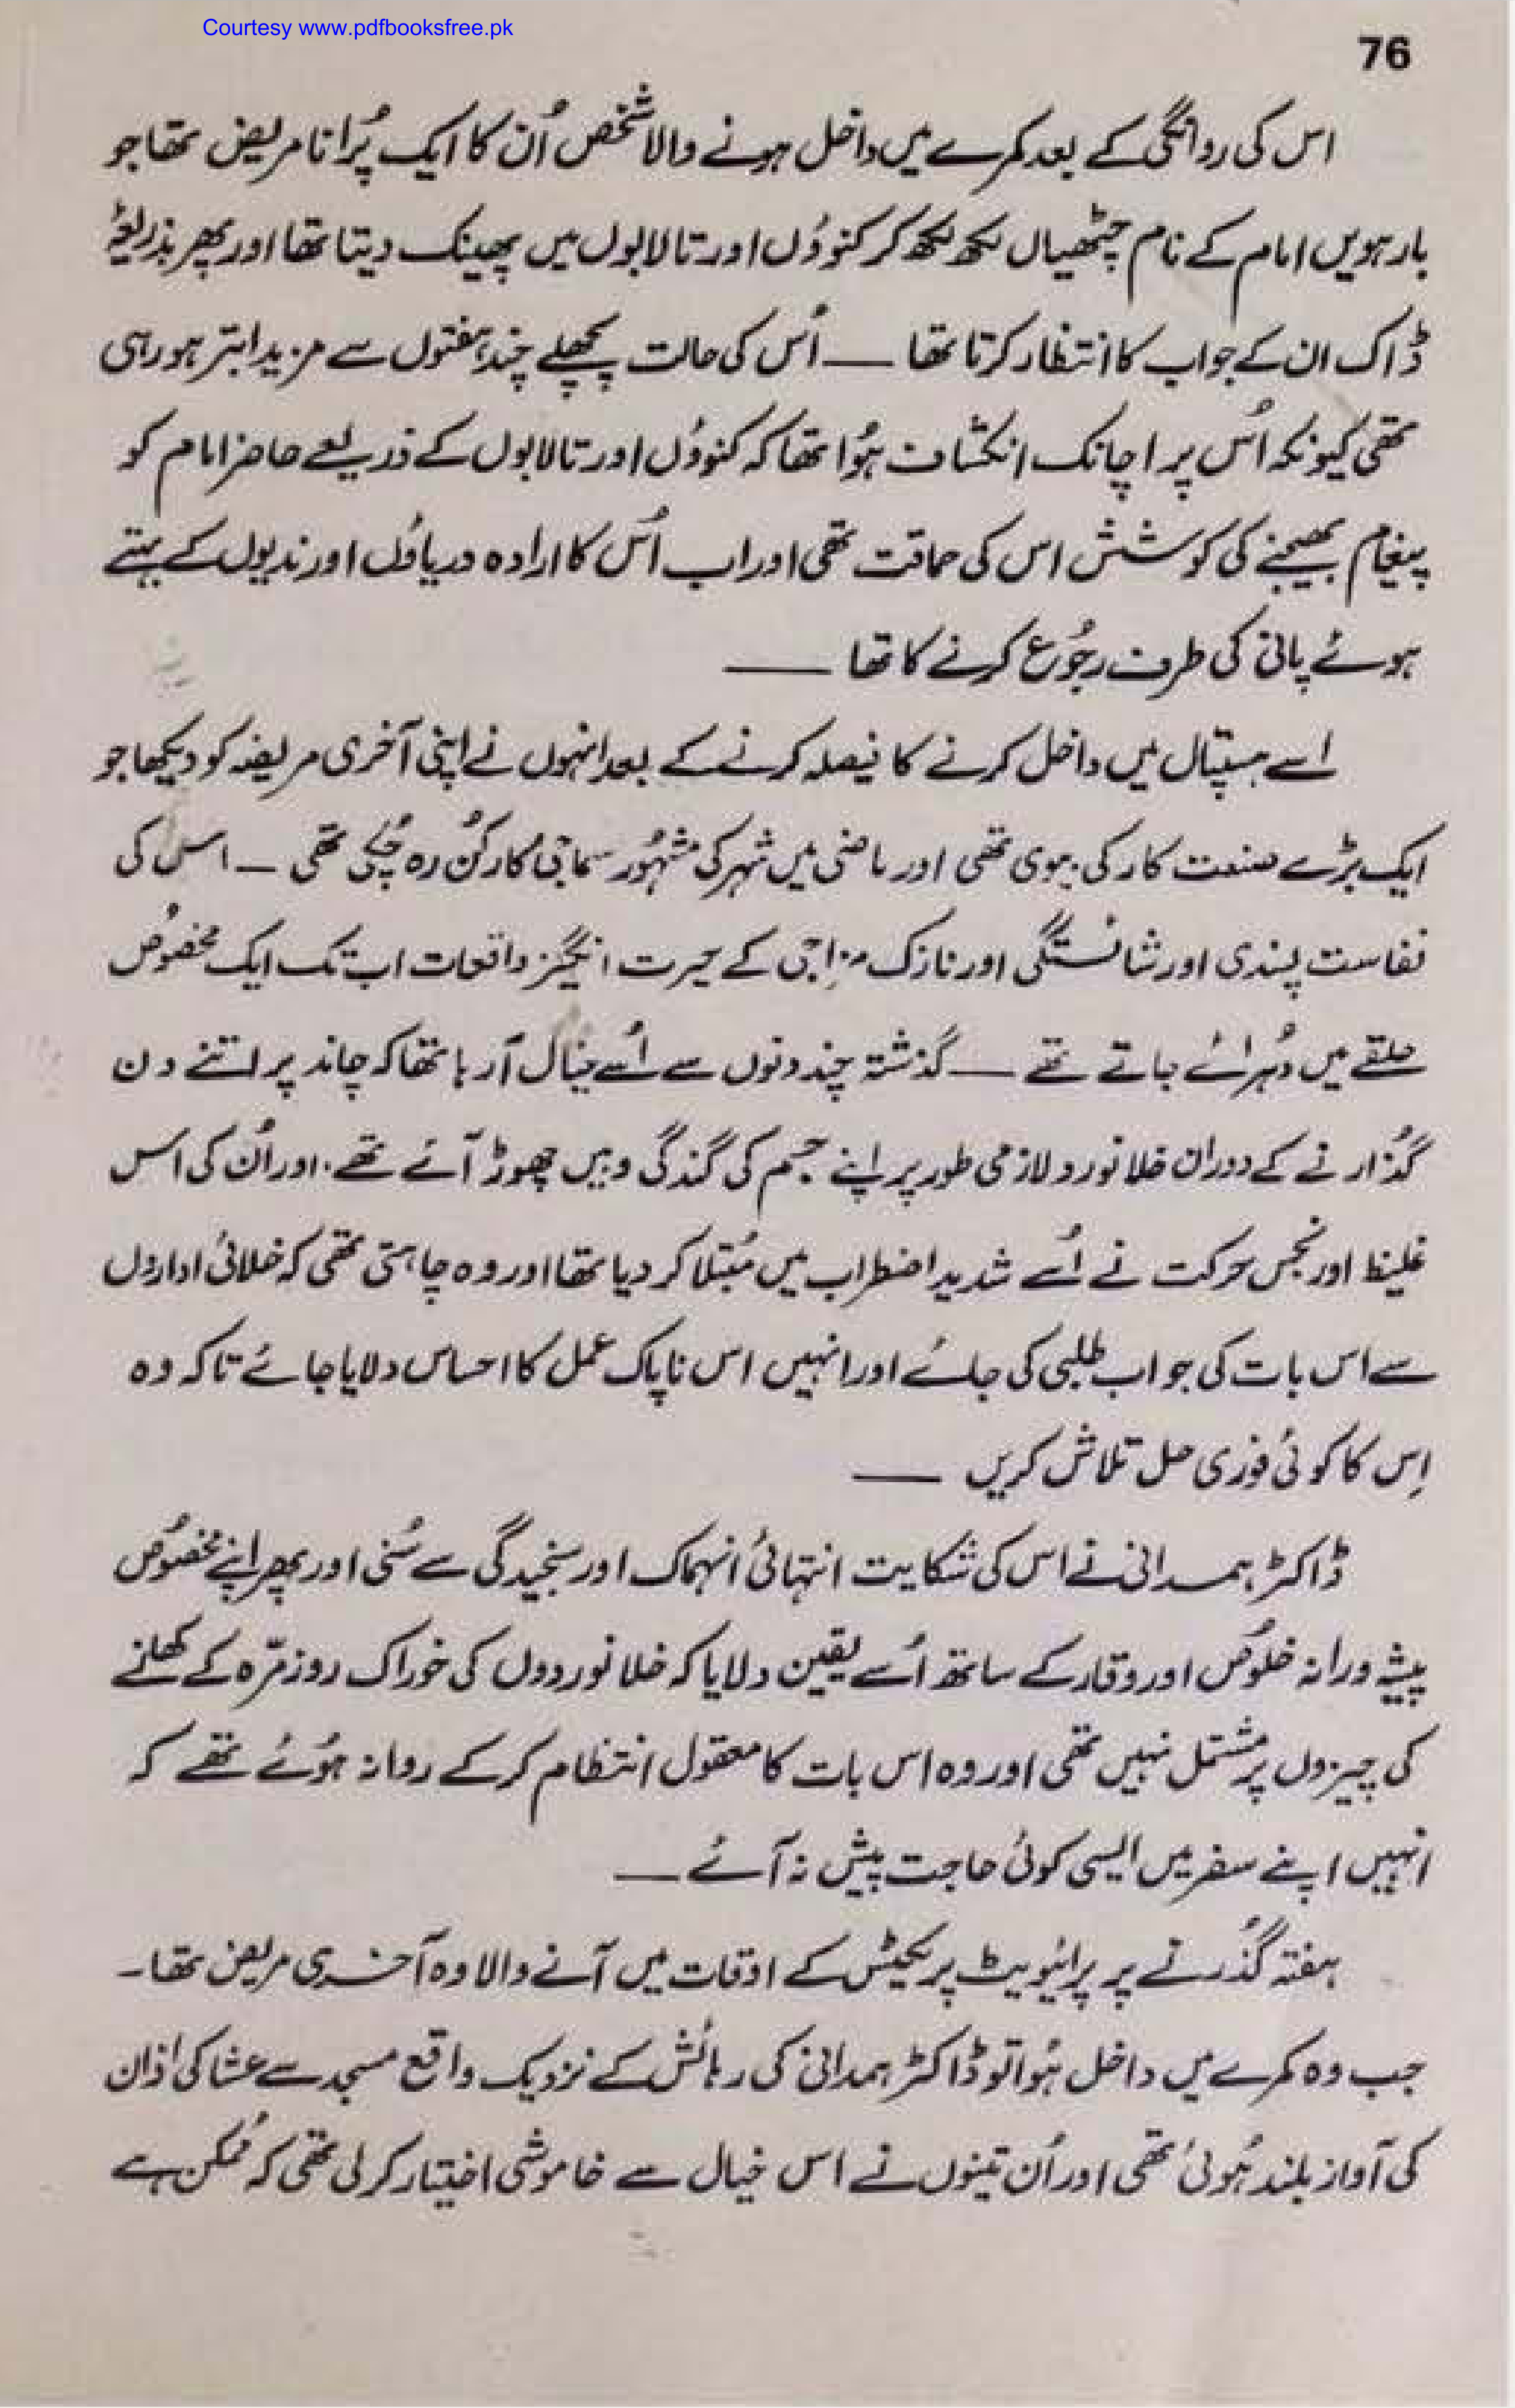 Courtesy www.pdfbooksfree.pk
76
اس کی روانگی کے بعد کمرے میں داخل ہونے والا شخص اُن کا ایک پُرانا مریض تھا جو
بارہویں امام کے نام چٹھیاں لکھ لکھ کر کنوؤں اور تالابوں میں پھینک دیتا تھا اور پھر بذریعۂ
ڈاک ان کے جواب کا انتظار کرتا تھا ـــــ اُس کی حالت پچھلے چند ہفتوں سے مزید ابتر ہو رہی
تھی کیونکہ اُس پر اچانک انکشاف ہُوا تھا کہ کنوؤں اور تالابوں کے ذریعے حاضر امام کو
پیغام بھیجنے کی کوشش اس کی حماقت تھی اور اب اُس کا ارادہ دریاؤں اور ندیوں کے بہتے
ہوئے پانی کی طرف رجُوع کرنے کا تھا ـــــ
اسے ہسپتال میں داخل کرنے کا فیصلہ کرنے کے بعد انہوں نے اپنی آخری مریضہ کو دیکھا جو
ایک بڑے صنعت کار کی بیوی تھی اور ماضی میں شہر کی مشہُور سماجی کارکُن رہ چُکی تھی ــ اس کی
نفاست پسندی اور شائستگی اور نازک مزاجی کے حیرت انگیز واقعات اب تک ایک مخصُوص
حلقے میں دُہرائے جاتے تھے ـــــ گذشتہ چند دنوں سے اُسے خیال آ رہا تھا کہ چاند پر اتنے دن
گُذارنے کے دوران خلا نورد لازمی طور پر اپنے جسم کی گندگی وہیں چھوڑ آئے تھے۔ اور اُن کی اس
غلیظ اور نجس حرکت نے اُسے شدید اضطراب میں مُبتلا کر دیا تھا اور وہ چاہتی تھی کہ خلائی اداروں
سے اس بات کی جواب طلبی کی جائے اور انہیں اس ناپاک عمل کا احساس دلایا جائے تاکہ وہ
اِس کا کوئی فوری حل تلاش کریں ـــــ
ڈاکٹر ہمدانی نے اس کی شکایت انتہائی انہماک اور سنجیدگی سے سُنی اور پھر اپنے مخصُوص
پیشہ ورانہ خلُوص اور وقار کے ساتھ اُسے یقین دلایا کہ خلا نوردوں کی خوراک روزمرّہ کے کھانے
کی چیزوں پر مشتمل نہیں تھی اور وہ اس بات کا معقول انتظام کر کے روانہ ہُوئے تھے کہ
انہیں اپنے سفر میں ایسی کوئی حاجت پیش نہ آئے ـــــ
ہفتہ گُذرنے پر پرائیویٹ پریکٹس کے اوقات میں آنے والا وہ آخری مریض تھا۔
جب وہ کمرے میں داخل ہُوا تو ڈاکٹر ہمدانی کی رہائش کے نزدیک واقع مسجد سے عشا کی اذان
کی آواز بلند ہُوئی تھی اور اُن تینوں نے اس خیال سے خاموشی اختیار کر لی تھی کہ مُمکن ہے